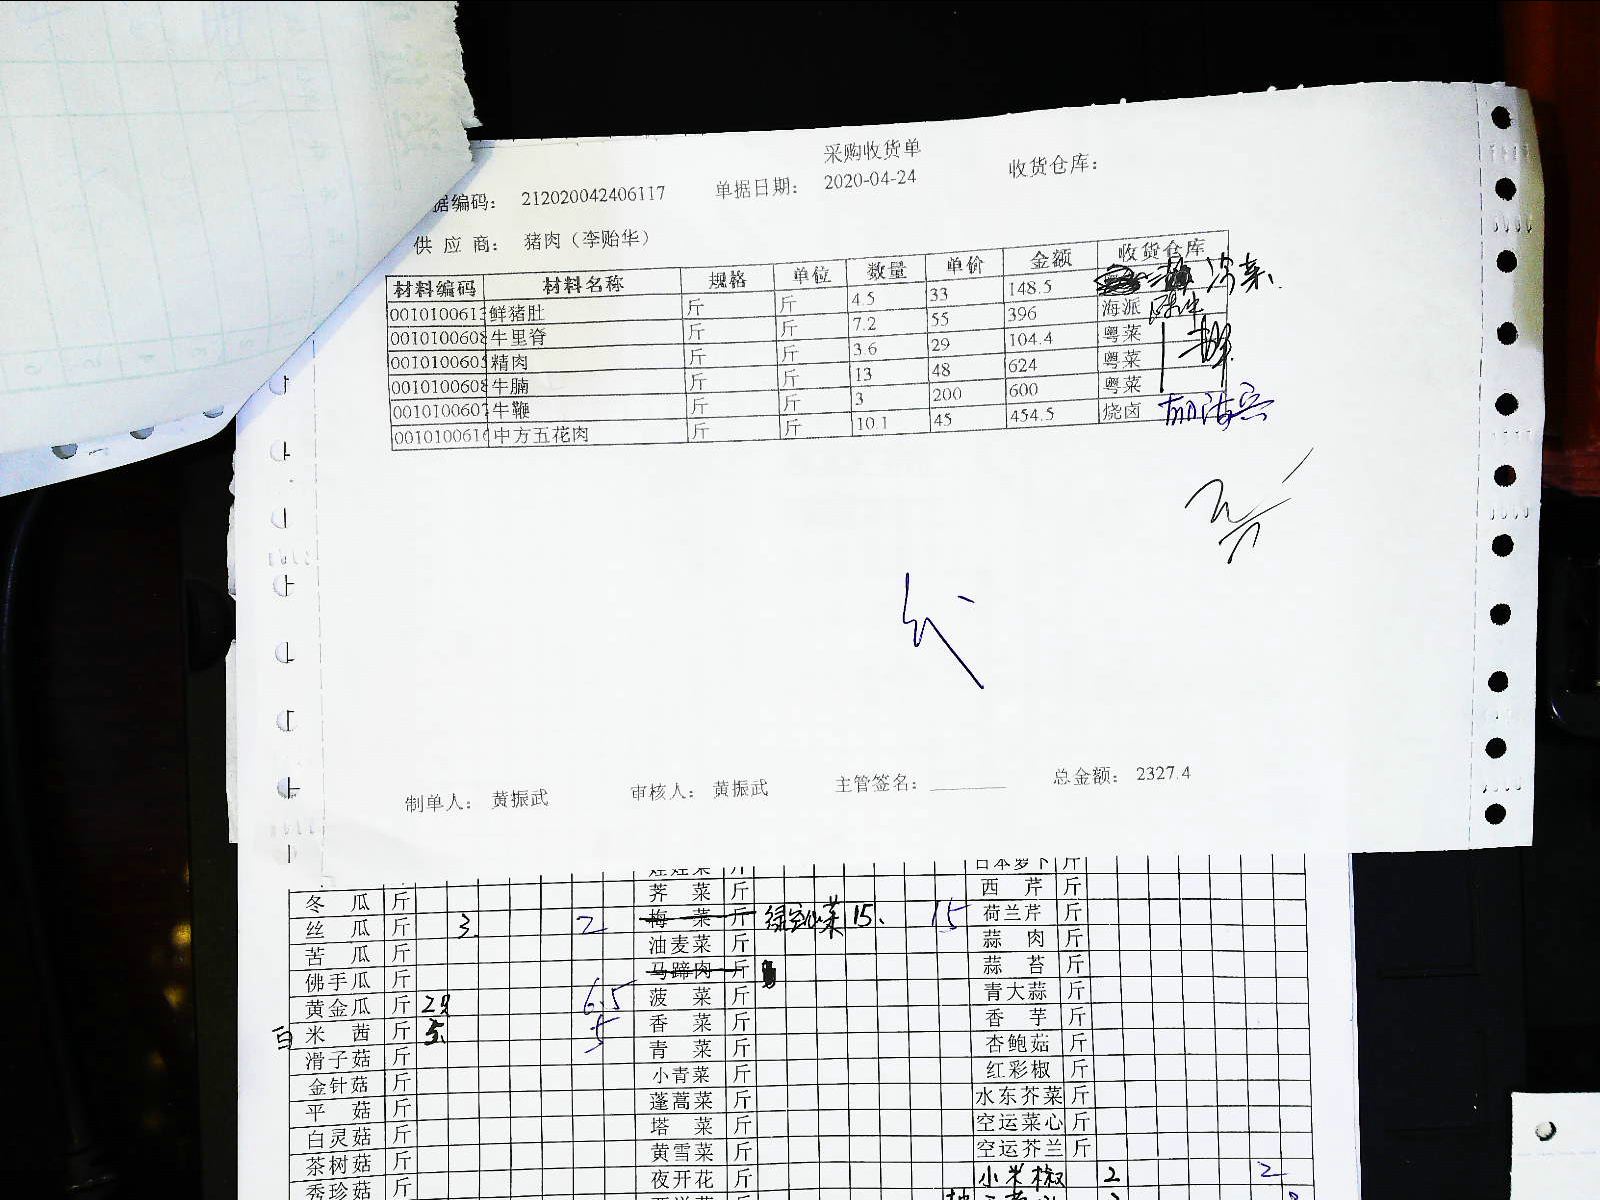 采购收货单
据编码: 212020042406117 单据日期: 2020-04-24 收货仓库:
供应商: 猪肉（李贻华）
材料编码 材料名称 规格 单位 数量 单价 金额 收货仓库
001010061 鲜猪肚 斤 斤 4.5 33 148.5 凉菜
001010060 牛里脊 斤 斤 7.2 55 396 海派
001010060 精肉 斤 斤 3.6 29 104.4 粤菜
001010060 牛腩 斤 斤 13 48 624 粤菜
001010060 牛鞭 斤 斤 3 200 600 粤菜
001010061 中方五花肉 斤 斤 10.1 45 454.5 烧卤
制单人: 黄振武 审核人: 黄振武 主管签名: 总金额: 2327.4
日本萝卜 斤
冬瓜 斤 荠菜 斤 西芹 斤
丝瓜 斤 3. 2 梅菜 斤 绿空心菜 15. 15 荷兰芹 斤
苦瓜 斤 油麦菜 斤 蒜肉 斤
佛手瓜 斤 马蹄肉 斤 蒜苔 斤
黄金瓜 斤 6.5 菠菜 斤 青大蒜 斤
白米茜 斤 5. 5 香菜 斤 香芋 斤
滑子菇 斤 青菜 斤 杏鲍菇 斤
金针菇 斤 小青菜 斤 红彩椒 斤
平菇 斤 蓬蒿菜 斤 水东芥菜 斤
白灵菇 斤 塔菜 斤 空运菜心 斤
茶树菇 斤 黄雪菜 斤 空运芥兰 斤
秀珍菇 斤 夜开花 斤 小米椒 2 2